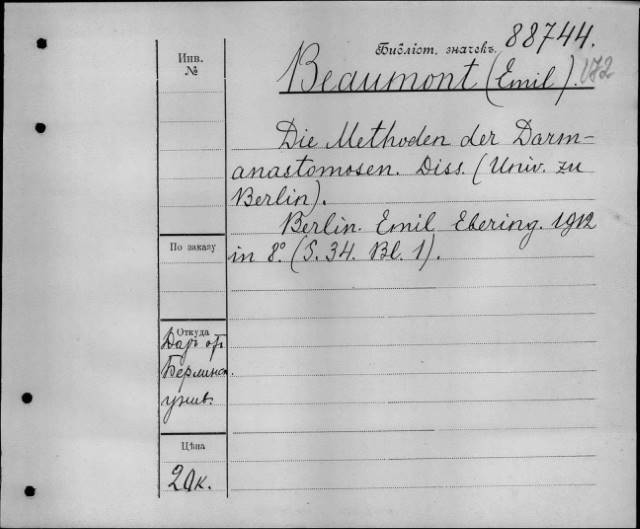 Инв.
№
Библіот. значекъ 88744.
Beaumont (Emil). 172
Die Methoden der Darm-
anastomosen. Diss. (Univ. zu
Berlin).
Berlin. Emil Ebering. 1912
in 8º. (S. 34. Bl. 1).
По заказу
Откуда
Даръ от
Берлинск.
унив.
Цѣна
20к.